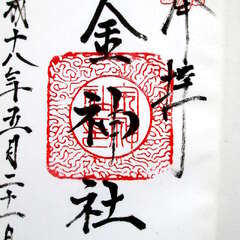 奉拝
金神社
平成十八年五月二十一日